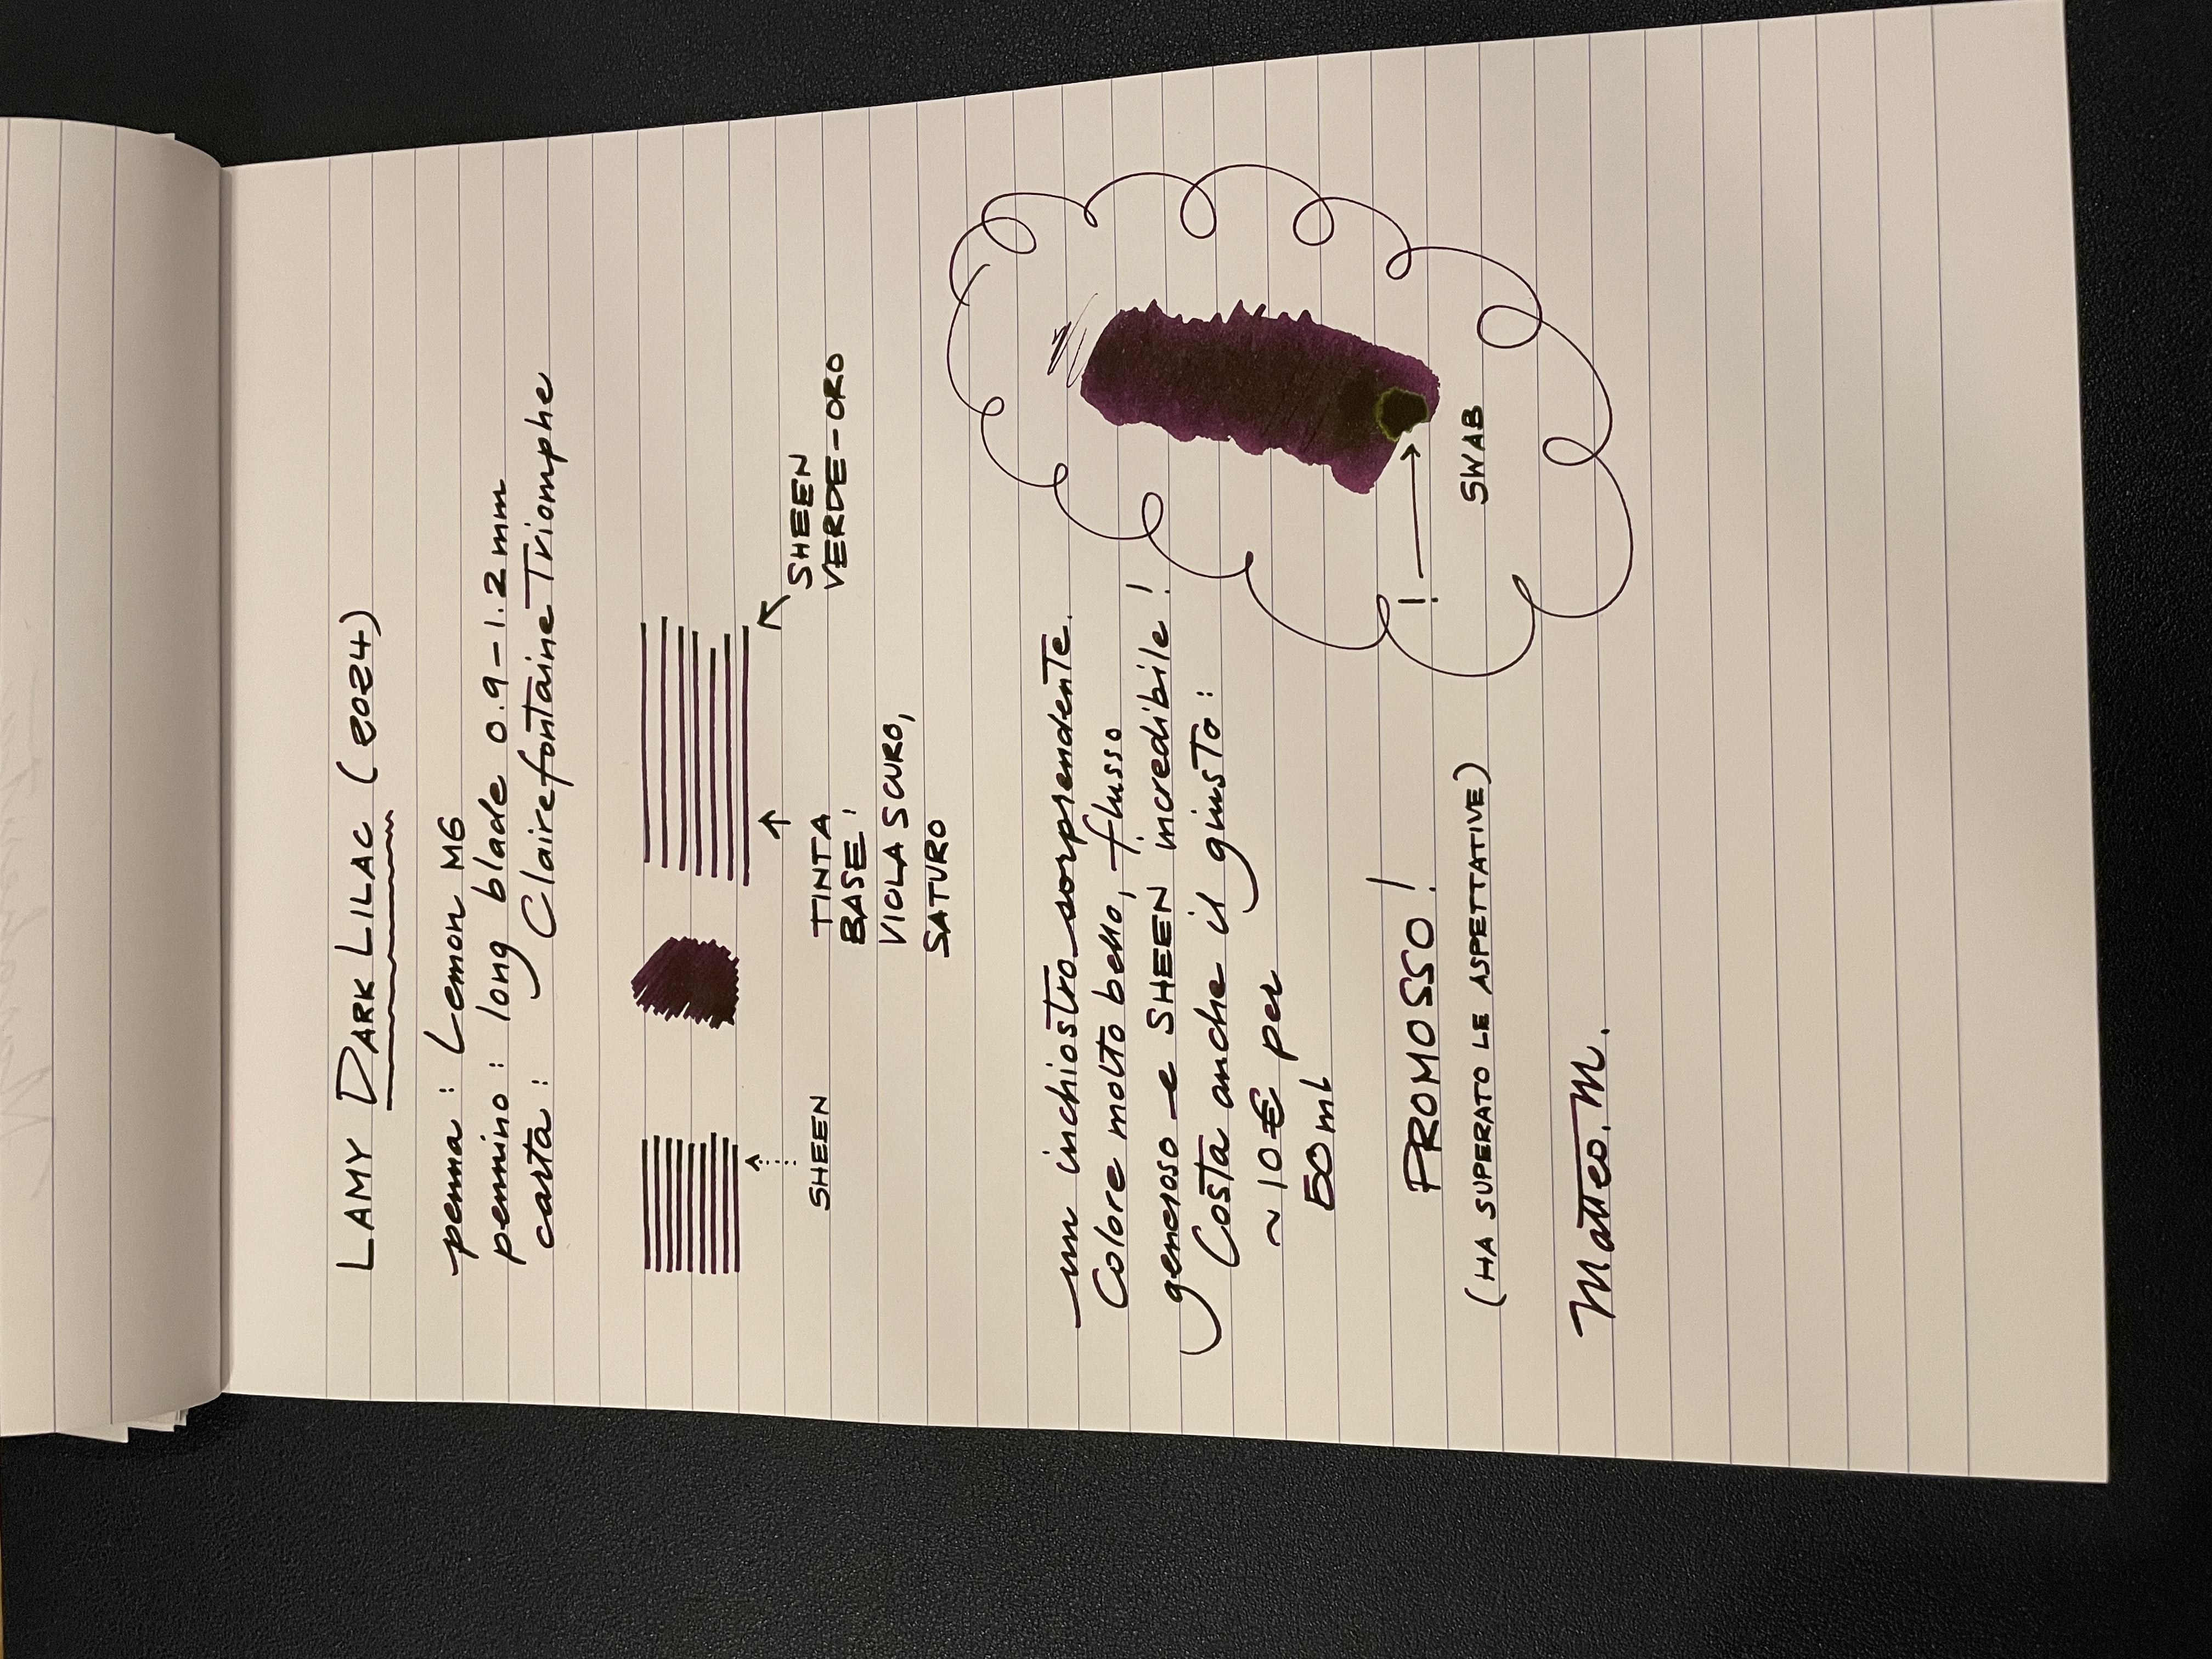 LAMY DARK LILAC (2024)
penna: Lemon M6
pennino: long blade 0.9-1.2mm
carta: Clairefontaine Triomphe
SHEEN
TINTA
BASE:
VIOLA SCURO,
SATURO
SHEEN
VERDE-ORO
un inchiostro sorprendente.
Colore molto bello, flusso
generoso e SHEEN incredibile!
Costa anche il giusto:
~10€ per
50ml
!
SWAB
PROMOSSO!
(HA SUPERATO LE ASPETTATIVE)
Matteo.M.